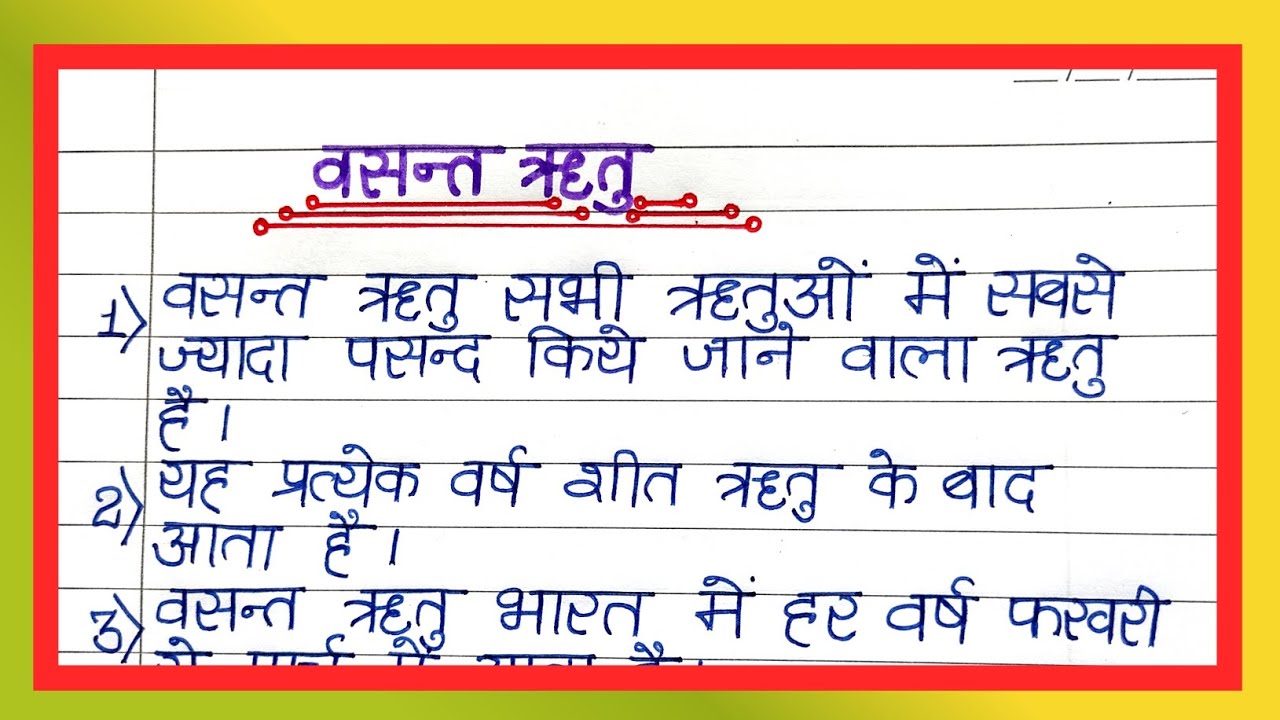 वसन्त ऋतु
1) वसन्त ऋतु सभी ऋतुओं में सबसे
ज्यादा पसन्द किये जाने वाला ऋतु
है।
2) यह प्रत्येक वर्ष शीत ऋतु के बाद
आता है।
3) वसन्त ऋतु भारत में हर वर्ष फरवरी